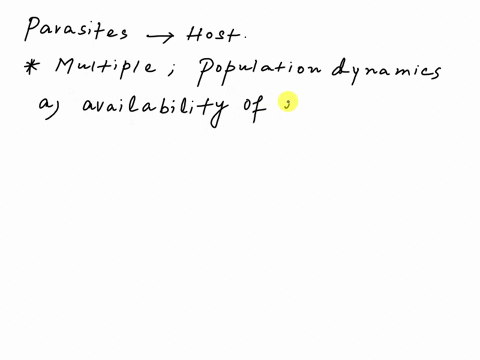 Parasites → Host.
* Multiple ; Population dynamics
a) availability of